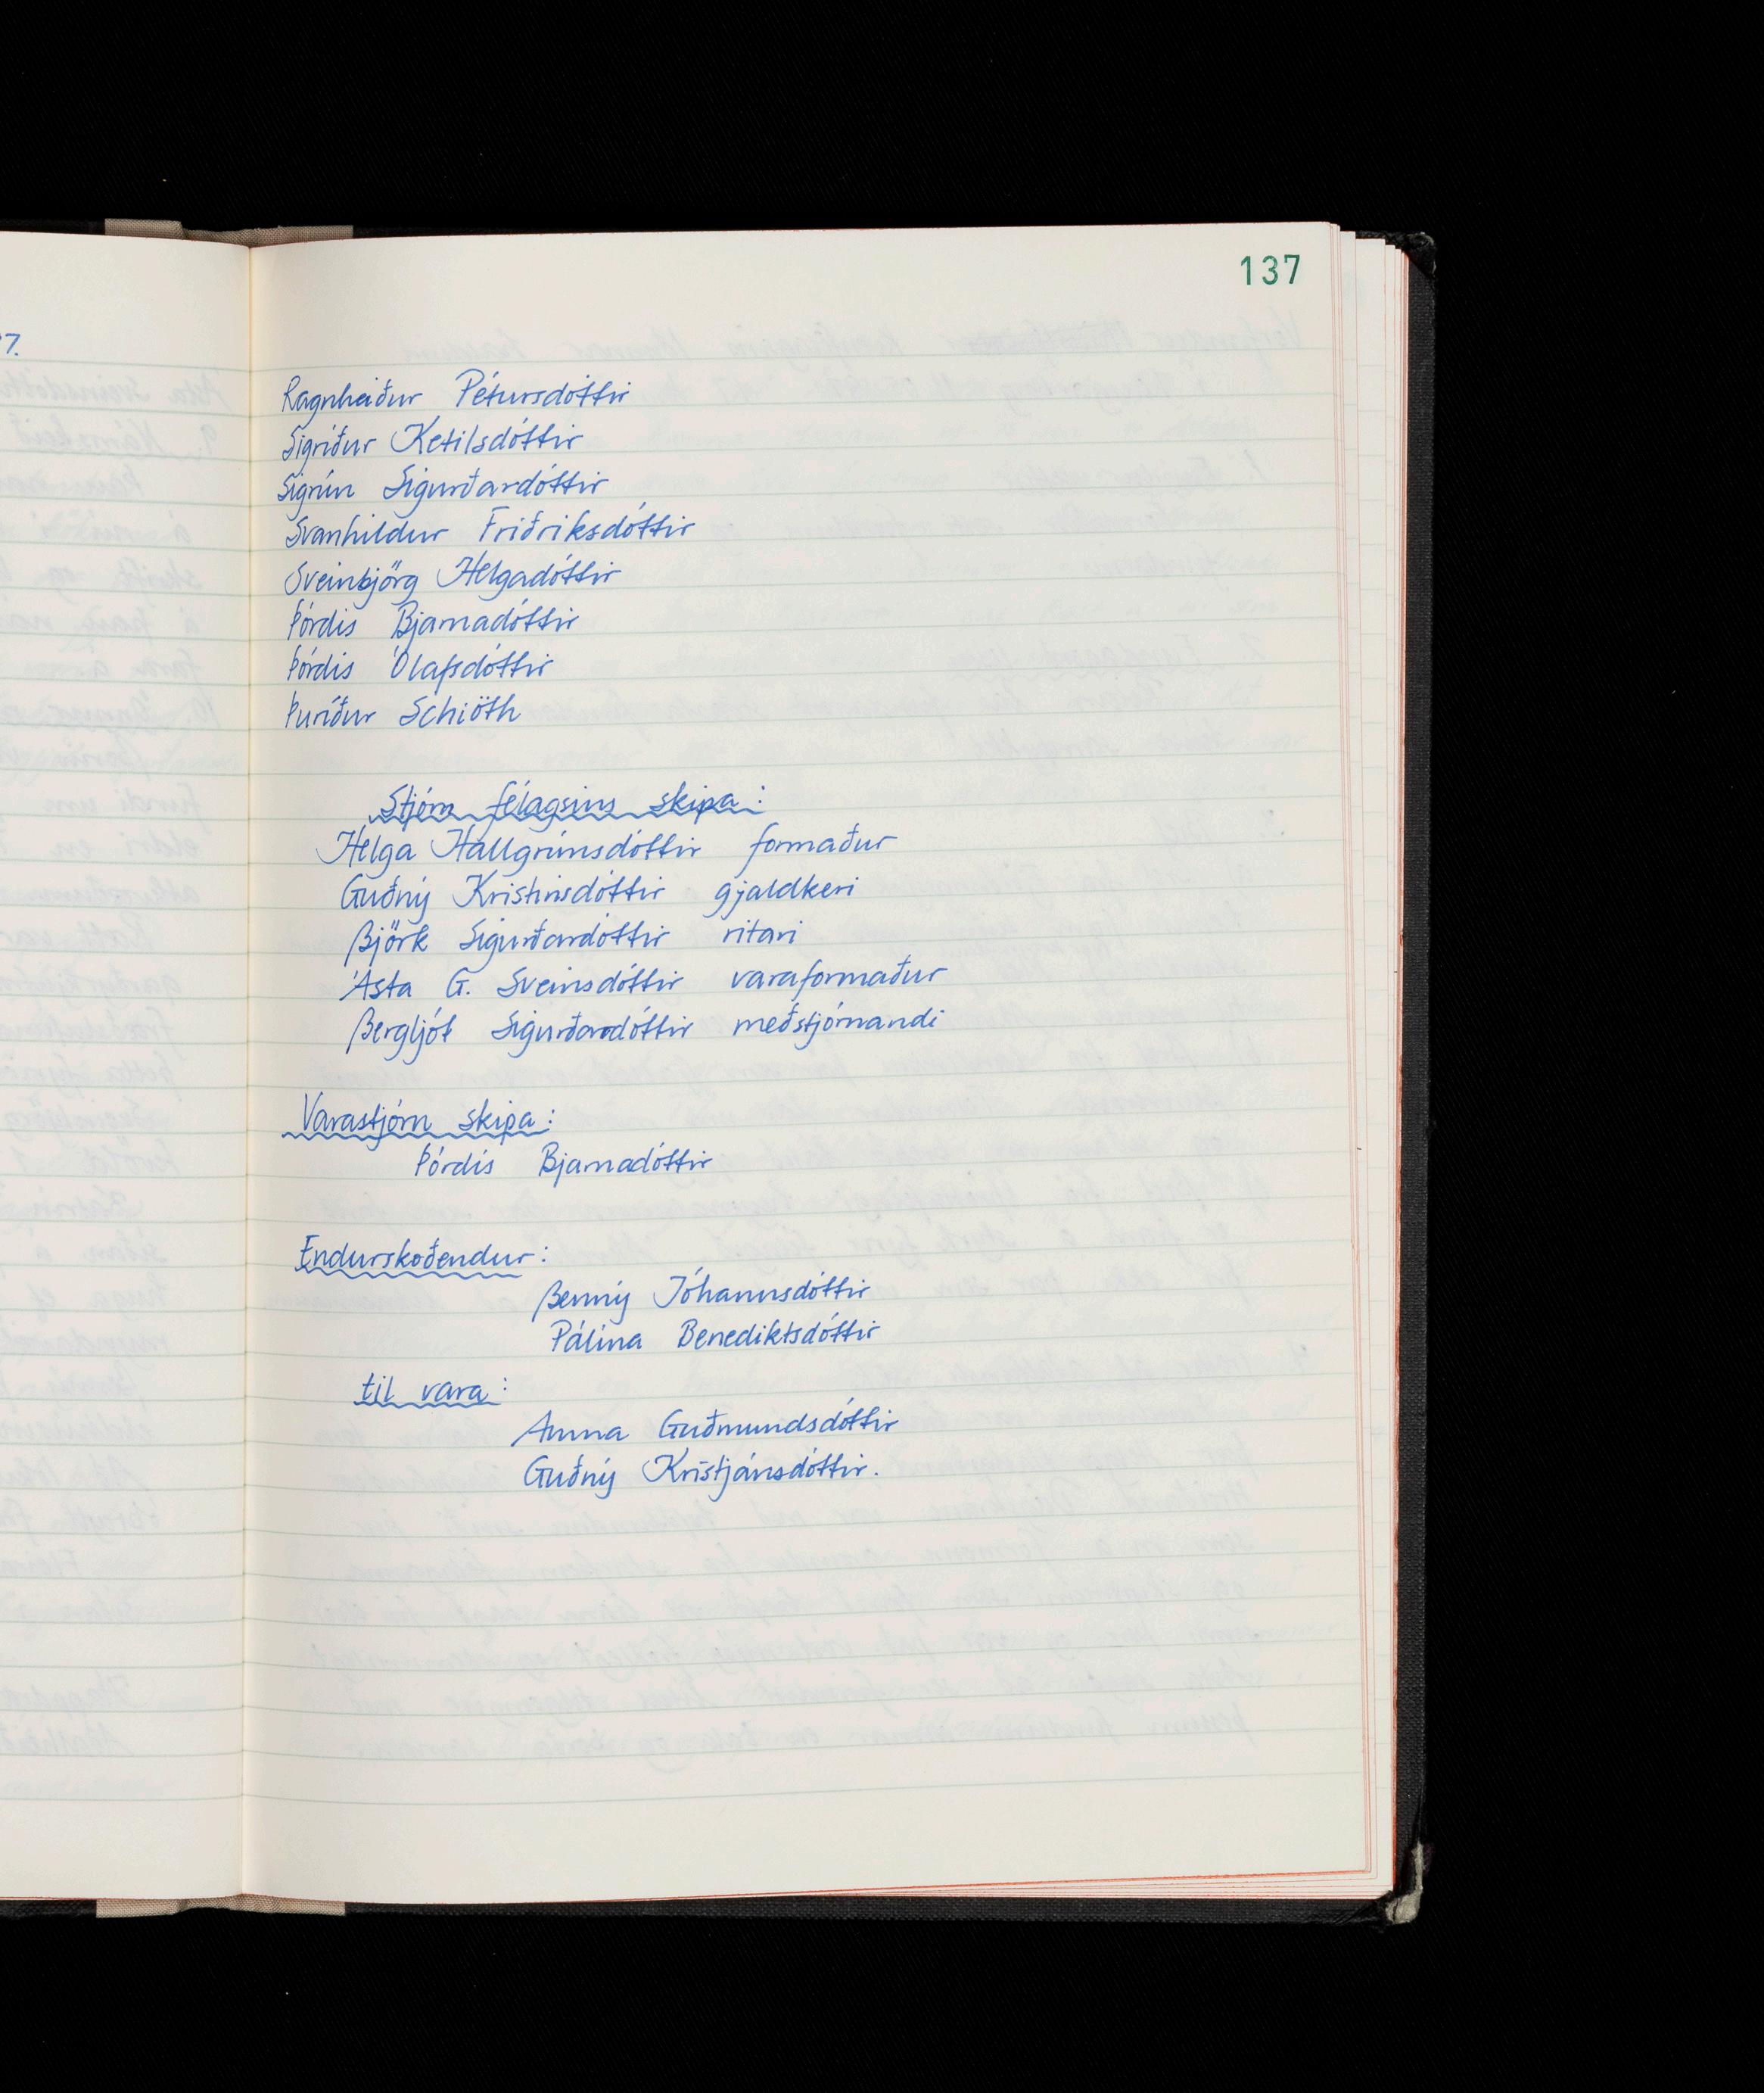 137
7.
Ragnheiður Pétursdóttir
Sigríður Ketilsdóttir
Sigrún Sigurðardóttir
Svanhildur Friðriksdóttir
Sveinbjörg Helgadóttir
Þórdís Bjarnadóttir
Þórdís Ólafsdóttir
Þuríður Schiöth
Stjórn félagsins skipa:
Helga Hallgrímsdóttir formaður
Guðný Kristinsdóttir gjaldkeri
Björk Sigurðardóttir ritari
Ásta G. Sveinsdóttir varaformaður
Bergljót Sigurðardóttir meðstjórnandi
Varastjórn skipa:
Þórdís Bjarnadóttir
Endurskoðendur:
Benný Jóhannsdóttir
Pálína Benediktsdóttir
til vara:
Anna Guðmundsdóttir
Guðný Kristjánsdóttir.